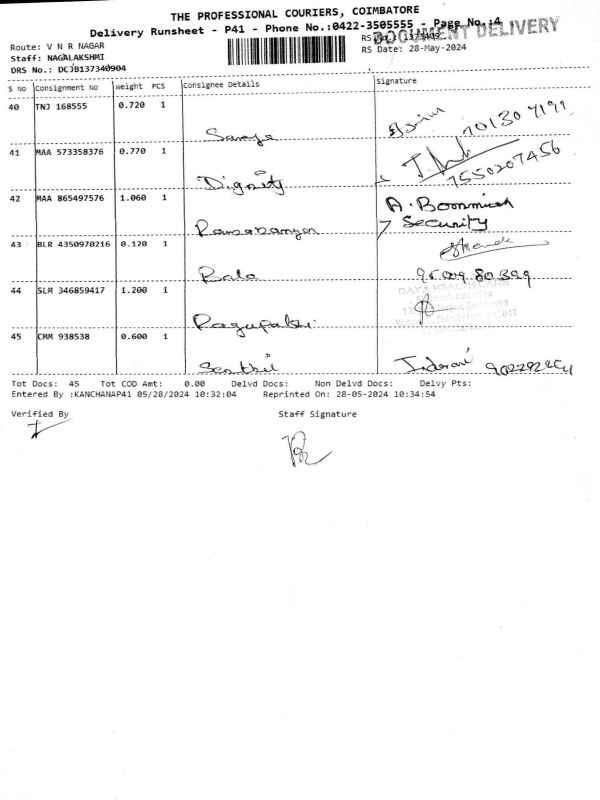 THE PROFESSIONAL COURIERS, COIMBATORE
Delivery Runsheet - P41 - Phone No.:0422-3505555 - Page No.:4
DOCUMENT DELIVERY
Route: V N R NAGAR
RS No.:
Staff: NAGALAKSHMI
RS Date: 28-May-2024
DRS No.: DCJB137340904
S No Consignment No Weight PCS Consignee Details Signature
40 TNJ 168555 0.720 1
Saroja
41 MAA 573358376 0.770 1
Dignity
7550207456
42 MAA 865497576 1.060 1
A. Boomicah
Security
43 BLR 4350970216 0.120 1
Bala
44 SLM 346859417 1.200 1
DAYA HEALTH CARE
Ragupathi
45 CRM 938538 0.600 1
Senthil Indorani
Tot Docs: 45 Tot COD Amt: 0.00 Delvd Docs: Non Delvd Docs: Delvy Pts:
Entered By :KANCHANAP41 05/28/2024 10:32:04 Reprinted On: 28-05-2024 10:34:54
Verified By Staff Signature